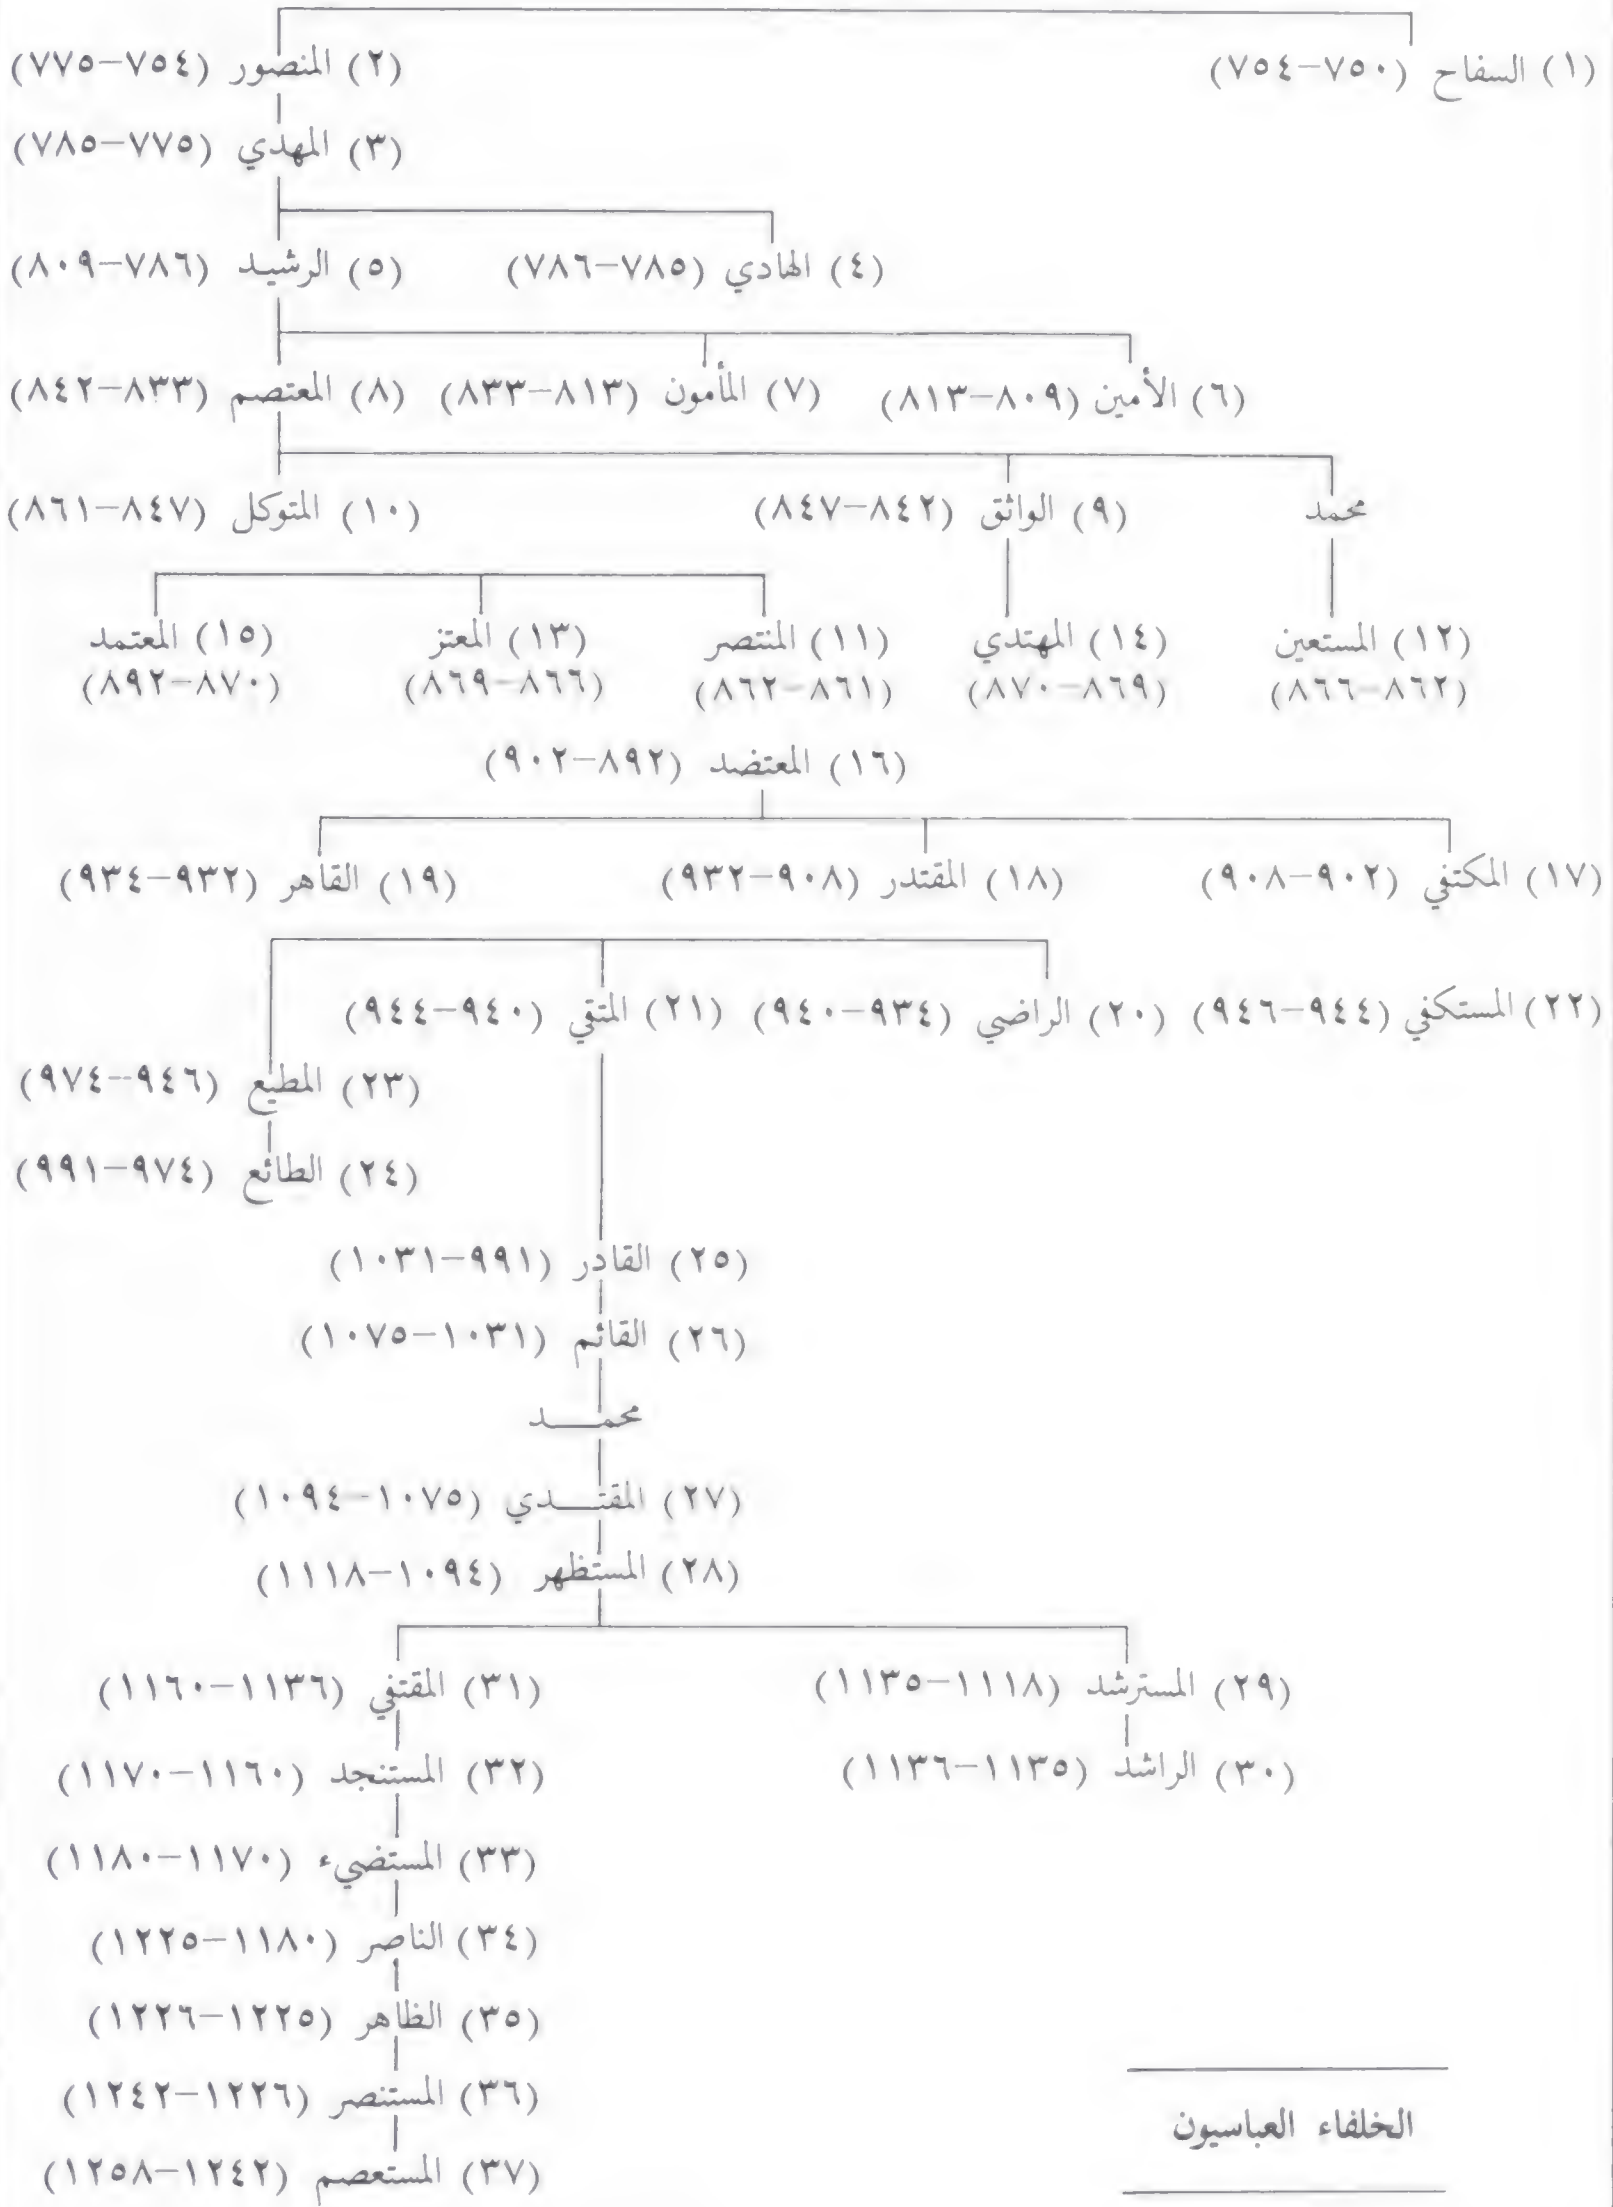 (١) السفاح (٧٥٠-٧٥٤) (٢) المنصور (٧٥٤-٧٧٥)
(٣) المهدي (٧٧٥-٧٨٥)
(٤) الهادي (٧٨٥-٧٨٦) (٥) الرشيد (٧٨٦-٨٠٩)
(٦) الأمين (٨٠٩-٨١٣) (٧) المأمون (٨١٣-٨٣٣) (٨) المعتصم (٨٣٣-٨٤٢)
محمد (٩) الواثق (٨٤٢-٨٤٧) (١٠) المتوكل (٨٤٧-٨٦١)
(١٢) المستعين (١٤) المهتدي (١١) المنتصر (١٣) المعتز (١٥) المعتمد
(٨٦٢-٨٦٦) (٨٦٩-٨٧٠) (٨٦١-٨٦٢) (٨٦٦-٨٦٩) (٨٧٠-٨٩٢)
(١٦) المعتضد (٨٩٢-٩٠٢)
(١٧) المكتفي (٩٠٢-٩٠٨) (١٨) المقتدر (٩٠٨-٩٣٢) (١٩) القاهر (٩٣٢-٩٣٤)
(٢٢) المستكفي (٩٤٤-٩٤٦) (٢٠) الراضي (٩٣٤-٩٤٠) (٢١) المتقي (٩٤٠-٩٤٤)
(٢٣) المطيع (٩٤٦-٩٧٤)
(٢٤) الطائع (٩٧٤-٩٩١)
(٢٥) القادر (٩٩١-١٠٣١)
(٢٦) القائم (١٠٣١-١٠٧٥)
محمد
(٢٧) المقتدي (١٠٧٥-١٠٩٤)
(٢٨) المستظهر (١٠٩٤-١١١٨)
(٢٩) المسترشد (١١١٨-١١٣٥) (٣١) المقتفي (١١٣٦-١١٦٠)
(٣٠) الراشد (١١٣٥-١١٣٦) (٣٢) المستنجد (١١٦٠-١١٧٠)
(٣٣) المستضيء (١١٧٠-١١٨٠)
(٣٤) الناصر (١١٨٠-١٢٢٥)
(٣٥) الظاهر (١٢٢٥-١٢٢٦)
(٣٦) المستنصر (١٢٢٦-١٢٤٢)
(٣٧) المستعصم (١٢٤٢-١٢٥٨)
الخلفاء العباسيون